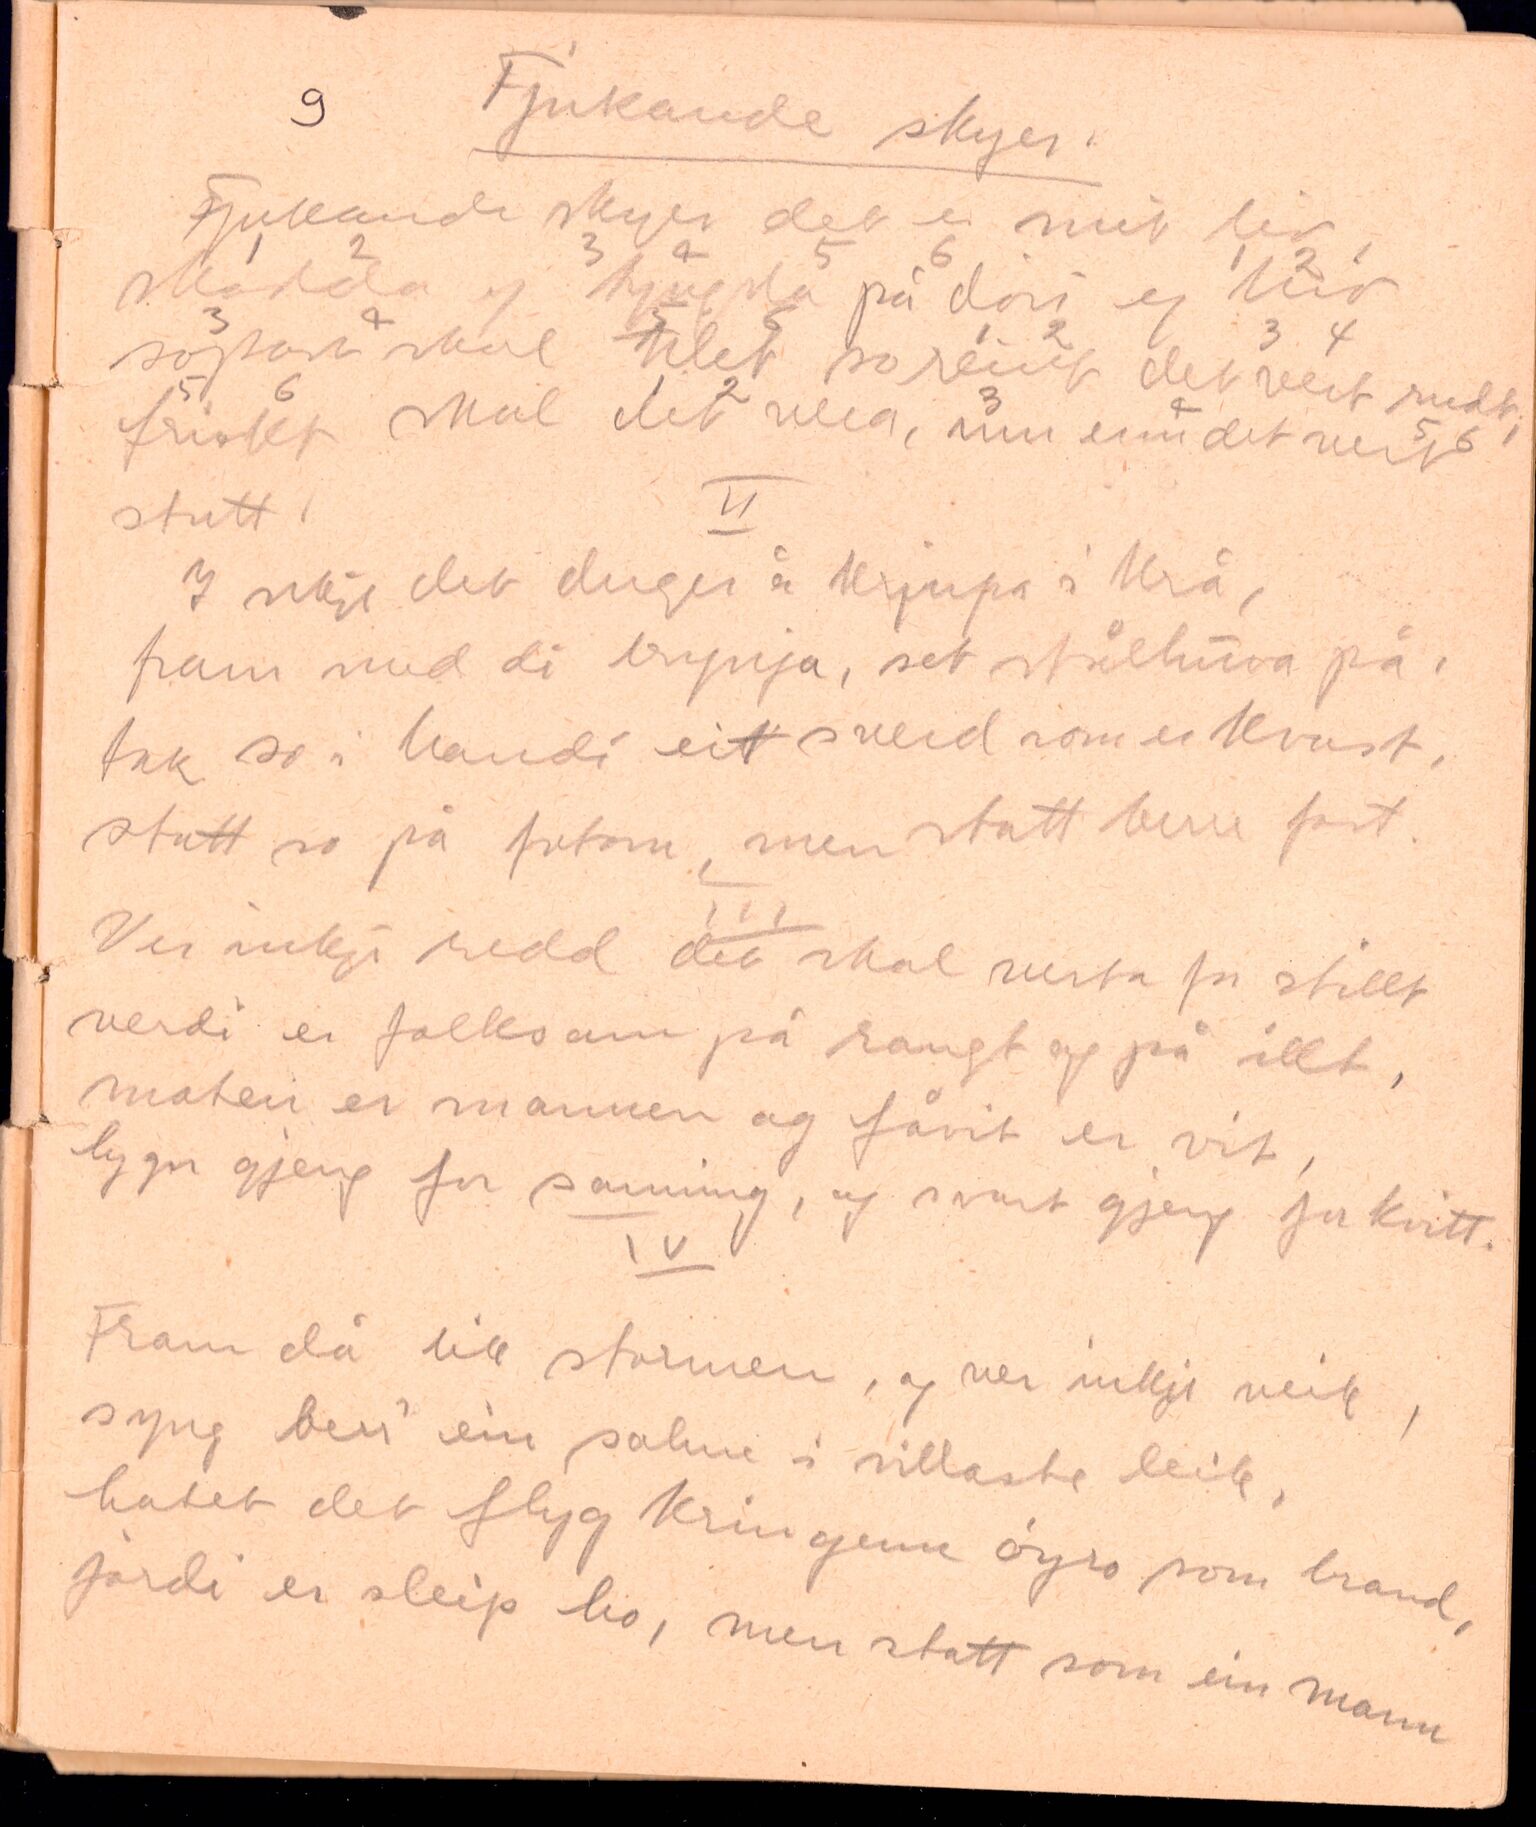 9 Fjukande skyer.
Fjukande skyer det er mit liv,
1 2 3 4 5 6 1 2
og på dori eg kliv
3 4 5 6 1 2 3 4
sopast skal so reint det vert rudt,
5 6 1 2 3 4 5 6
friskt skal det vera, um enn det vert
stutt.
II
Ikkje det duger å krjupa i krå,
fram med di brynja, set stålhuva på,
tak so i handi eitt sverd som er kvast,
statt so på fotom, men statt berre fast.
III
Ver inkje redd det skal verta for stillt
verdi er folksam på rangt og på illt,
maten er mannen og fåvit er vit,
lygn gjeng for sanning, og svart gjeng for kvitt.
IV
Fram då lik stormen, og ver inkje veik,
syng berr ein salme i villaste leik,
hatet det flyg kringom öyro som brand,
jordi er sleip ho, men statt som ein mann